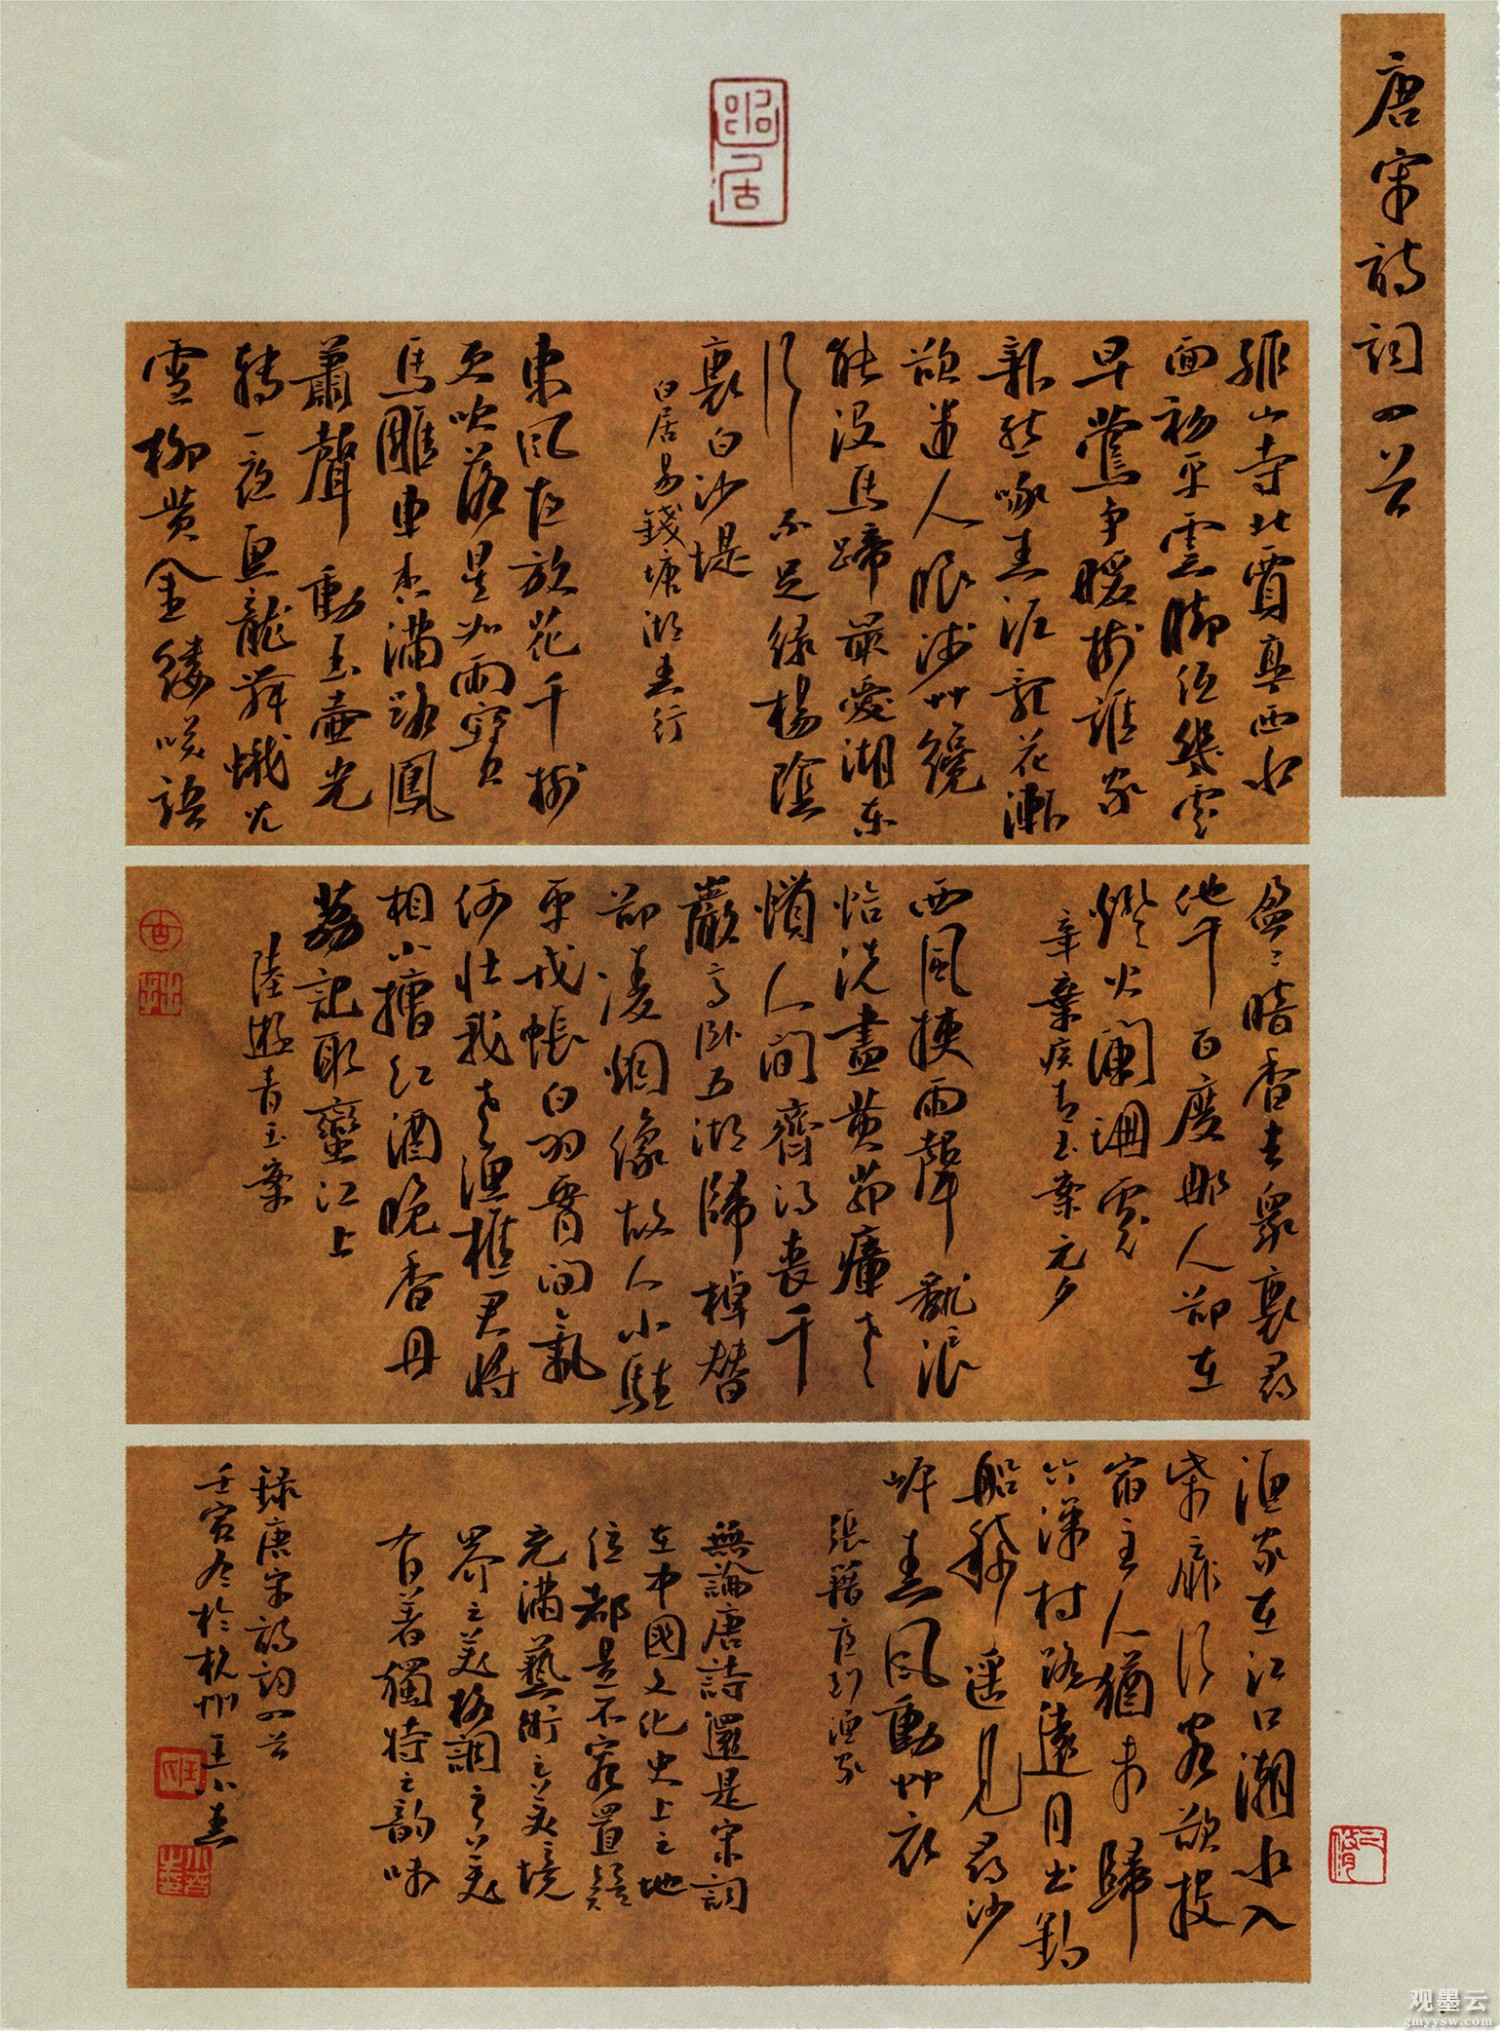 唐宋詩詞四首
孤山寺北賈亭西水
面初平雲脚低幾處
早鶯爭暖樹誰家
新燕啄春泥亂花漸
欲迷人眼淺草纔
能沒馬蹄最愛湖東
行不足綠楊陰
裏白沙堤
白居易錢塘湖春行
東風夜放花千樹
更吹落星如雨寶
馬雕車香滿路鳳
簫聲動玉壺光
轉一夜魚龍舞蛾兒
雪柳黃金縷笑語
盈盈暗香去眾裏尋
他千百度那人却在
燈火闌珊處
辛棄疾青玉案元夕
西風挾雨聲翻浪
恰洗盡黃茆瘴老
慣人間齊得喪千
巖高臥五湖歸棹替
却凌烟像故人小駐
平戎帳白羽腰間氣
何壯我老漁樵君將
相小槽紅酒晚香丹
荔記取蠻江上
陸游青玉案
漁家在江口潮水入
柴扉行客欲投
宿主人猶未歸
竹深村路遠月出釣
船稀遙見尋沙
岸春風動艸衣
張籍夜到漁家
無論唐詩還是宋詞
在中國文化史上之地
位都是不容置疑
充滿藝術之美境
界之美格調之美
有著獨特之韻味
錄唐宋詩詞四首
壬寅冬於杭州王小春
观墨云
gmyysw.com